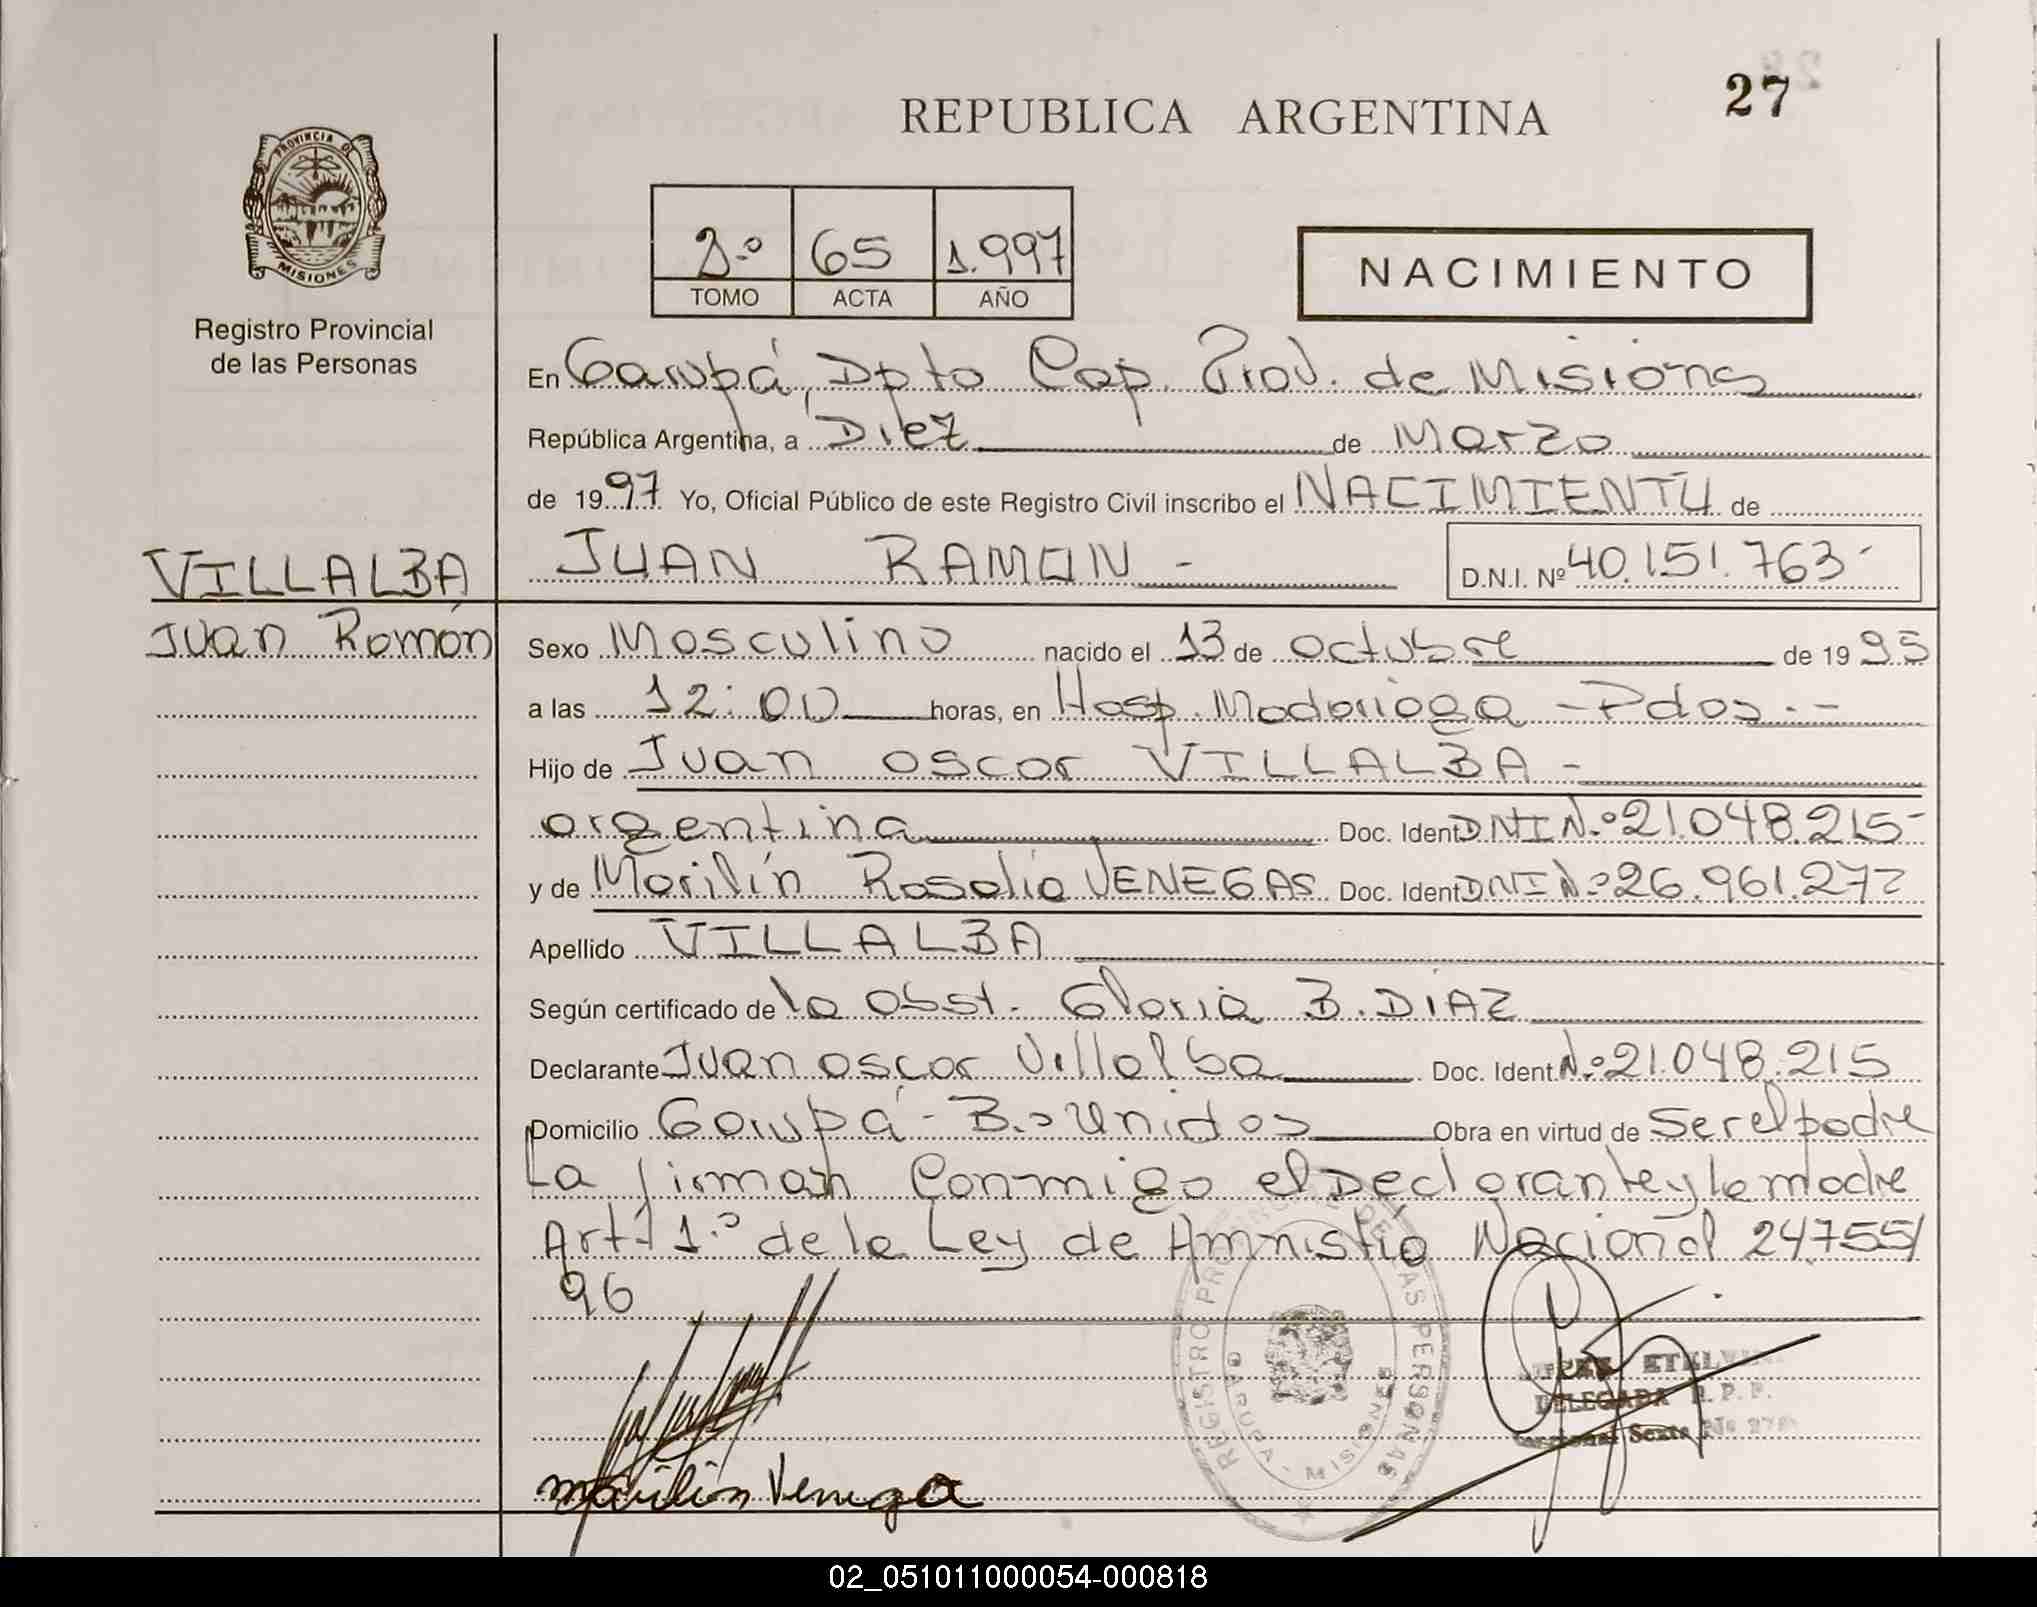 27
REPUBLICA ARGENTINA
PROVINCIA DE
MISIONES
Registro Provincial
de las Personas
2º 65 1.997
TOMO ACTA AÑO
NACIMIENTO
En Garupá, Dpto Cap. Prov. de Misiones
República Argentina, a Diez de Marzo
de 1997 Yo, Oficial Público de este Registro Civil inscribo el NACIMIENTO de
VILLALBA
JUAN RAMON - D.N.I. Nº 40.151.763-
Juan Ramón
Sexo Masculino nacido el 13 de octubre de 1995
a las 12:00 horas, en Hosp. Madariaga - Pdas.-
Hijo de Juan oscar VILLALBA -
argentina Doc. Ident DNI N.º 21.048.215-
y de Marilín Rosalía VENEGAS Doc. Ident DNI N.º 26.961.272
Apellido VILLALBA
Según certificado de la Obst. Gloria B. DIAZ
Declarante Juan oscar Villalba Doc. Ident. N.º 21.048.215
Domicilio Garupá - B.º Unidos Obra en virtud de Ser el padre
La firman Conmigo el Declarante y la madre
Art. 1.º de la Ley de Amnistía Nacional 24755/
96
REGISTRO PROVINCIAL DE LAS PERSONAS
GARUPA - MISIONES
DELEGADA R. P. P.
Seccional Sexta
Marilin Venega
02_051011000054-000818